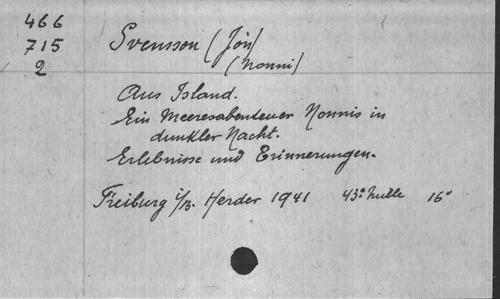 466
715
2
Svensson (Jón)
(Nonni)
Aus Island.
Ein Meeresabenteuer Nonnis in
dunkler Nacht.
Erlebnisse und Erinnerungen.
Freiburg i/B. Herder 1941 43º mille 16º